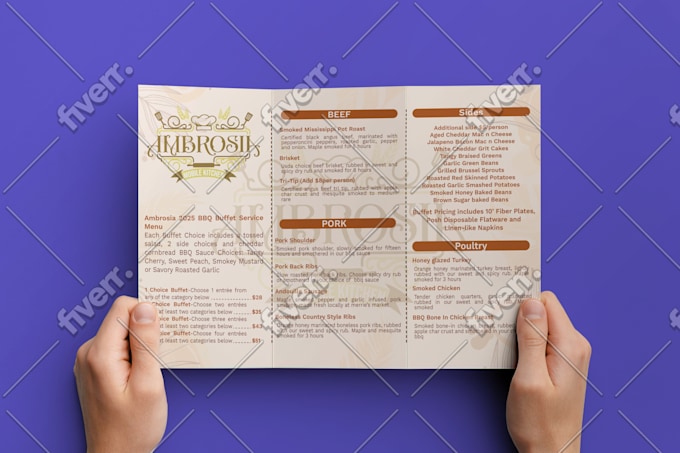 AMBROSIA
MOBILE KITCHEN
Ambrosia 2025 BBQ Buffet Service
Menu
Each Buffet Choice includes a tossed
salad, 2 side choices and cheddar
cornbread BBQ Sauce Choices: Tangy
Cherry, Sweet Peach, Smokey Mustard
or Savory Roasted Garlic
1 Choice Buffet-Choose 1 entree from
any of the category below $28
Choice Buffet-Choose two entrées
at least two categories below
Choice Buffet-Choose three entrées
at least two categories below
Choice Buffet-Choose four entrées
at least two categories below $51
BEEF
Smoked Mississippi Pot Roast
Certified black angus beef, marinated with
pepperoncini peppers, roasted garlic, pepper
and onion. Maple smoked for 8 hours
Brisket
Usda choice beef brisket, rubbed in sweet and
spicy dry rub and smoked for 8 hours
Tri-Tip (Add $8per person)
Certified angus beef tri tip, rubbed with
char crust and mesquite smoked to medium
rare
PORK
Pork Shoulder
Smoked pork shoulder, slowly smoked for fifteen
hours and smothered in our bbq sauce
Pork Back Ribs
Slow roasted ribs. Choose spicy dry rub
or smothered bbq sauce
Andouille Sausage
smoked pepper and garlic infused pork
sausage made fresh locally at merrie's market.
Boneless Country Style Ribs
honey marinated boneless pork ribs, rubbed
with our sweet and spicy rub. Maple and mesquite
smoked for 3 hours
Sides
Additional side $3/person
Aged Cheddar Mac n Cheese
Jalapeno Bacon Mac n Cheese
White Cheddar Grit Cakes
Tangy Braised Greens
Garlic Green Beans
Grilled Brussel Sprouts
Roasted Red Skinned Potatoes
Roasted Garlic Smashed Potatoes
Smoked Honey Baked Beans
Brown Sugar baked Beans
Buffet Pricing includes 10" Fiber Plates,
Posh Disposable Flatware and
Linen-like Napkins
Poultry
Honey glazed Turkey
Orange honey marinated turkey breast,
rubbed with our sweet and spicy rub, maple
smoked for hours
Smoked Chicken
Tender chicken quarters,
rubbed in our sweet and
smoked
BBQ Bone In Chicken Breast
Smoked bone-in chicken breast, rubbed
apple char crust and smothered in your
bbq
fiverr.
fiverr.
fiverr.
fiverr.
fiverr.
fiverr.
fiverr.
fiverr.
fiverr.